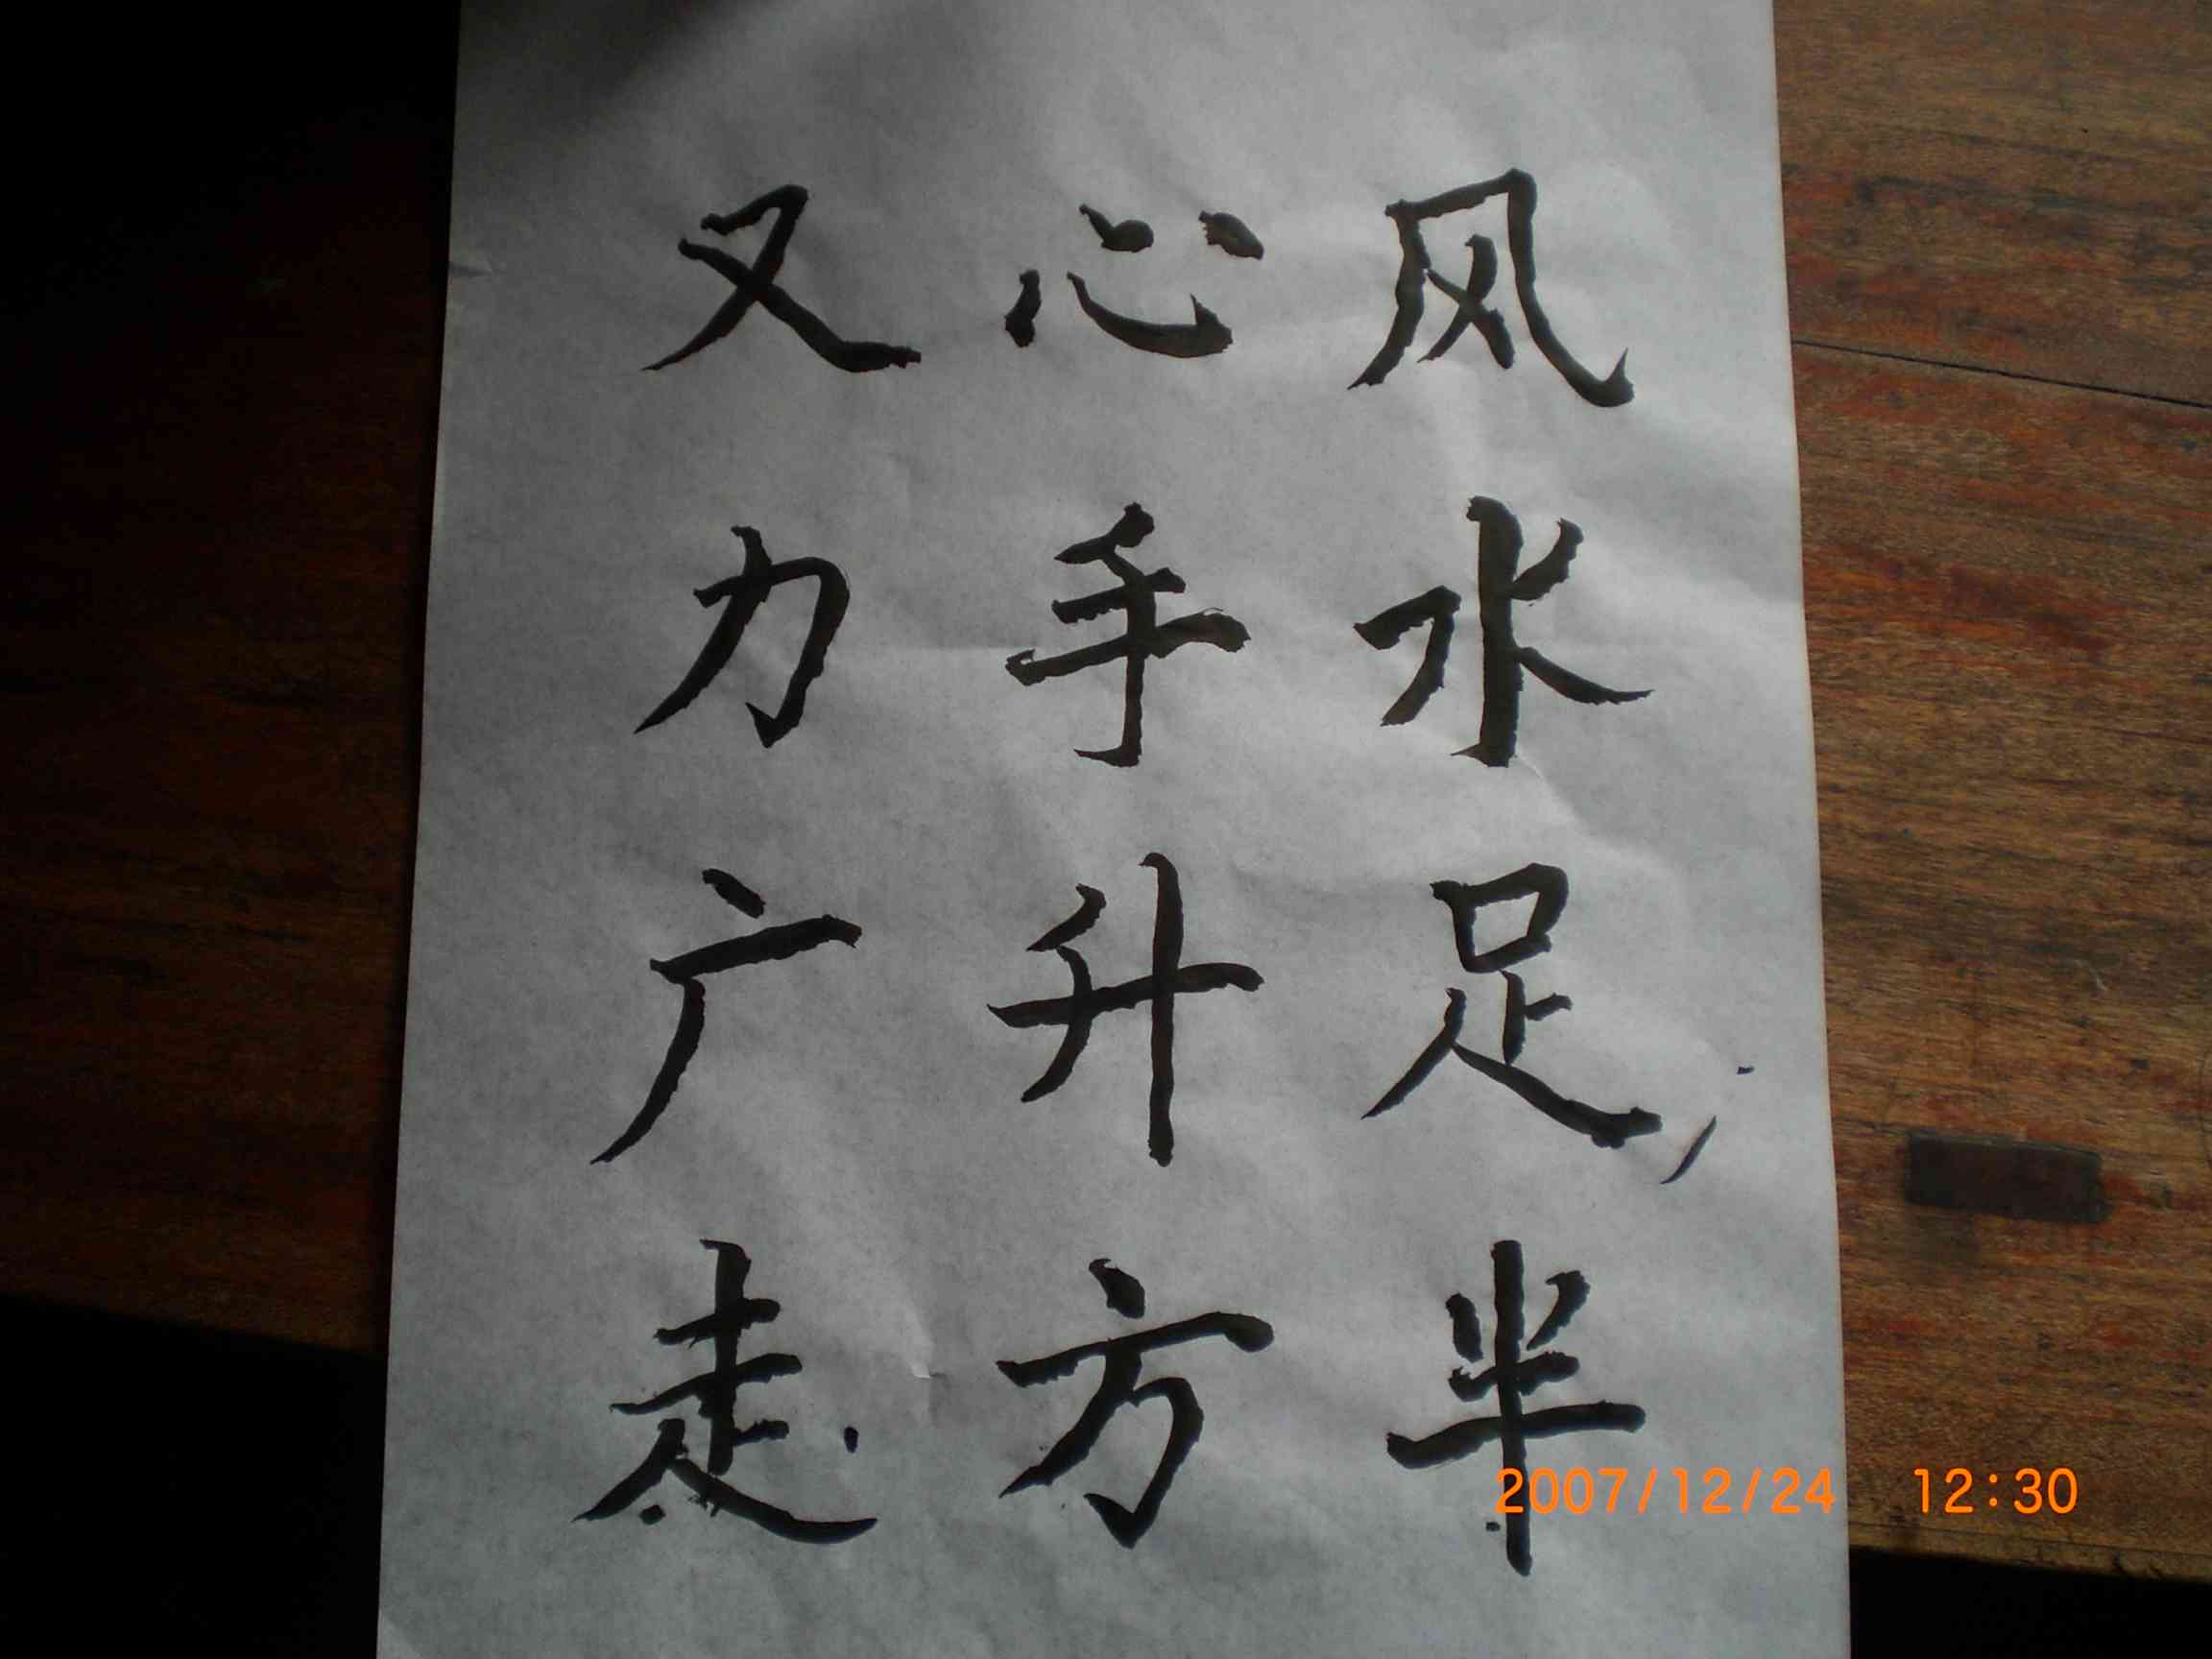 风水足半
心手升方
又力广走
2007/12/24 12:30